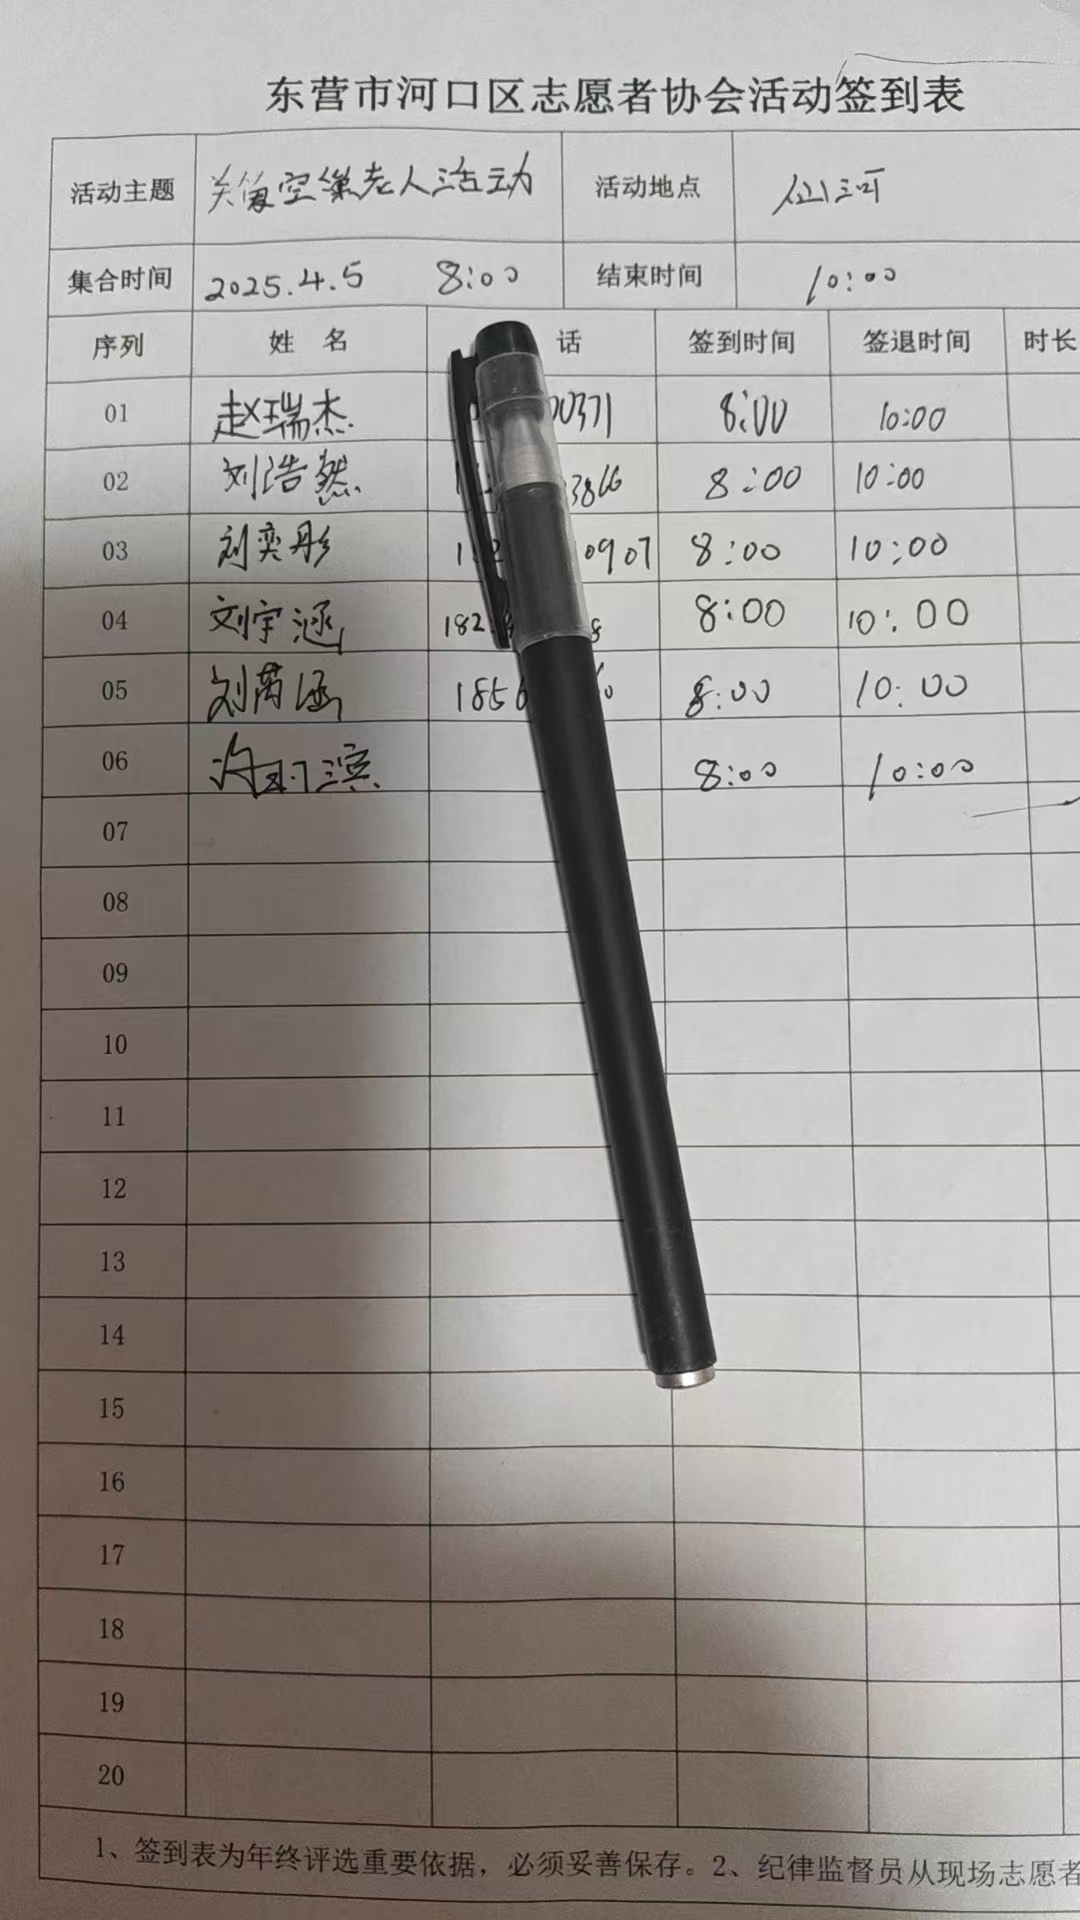 东营市河口区志愿者协会活动签到表
活动主题 关爱空巢老人活动 活动地点 仙河
集合时间 2025.4.5 8:00 结束时间 10:00
序列 姓 名 话 签到时间 签退时间 时长
01 赵瑞杰 00371 8:00 10:00
02 刘浩然 3866 8:00 10:00
03 刘奕彤 0907 8:00 10:00
04 刘宇涵 182 8 8:00 10:00
05 刘芮涵 1856 8:00 10:00
06 8:00 10:00
07
08
09
10
11
12
13
14
15
16
17
18
19
20
1、签到表为年终评选重要依据，必须妥善保存。2、纪律监督员从现场志愿者